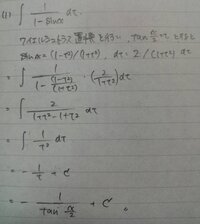 (1) ∫ 1/(1-sinx) dx
ワイエルシュトラス置換を行い、tan x/2 = t とすると
sinx = (1-t²)/(1+t²), dx = 2/(1+t²) dt
= ∫ 1/(1-(1-t²)/(1+t²)) · (2/(1+t²)) dt
= ∫ 2/(1+t²-1+t²) dt
= ∫ 1/t² dt
= -1/t + C
= -1/(tan x/2) + C